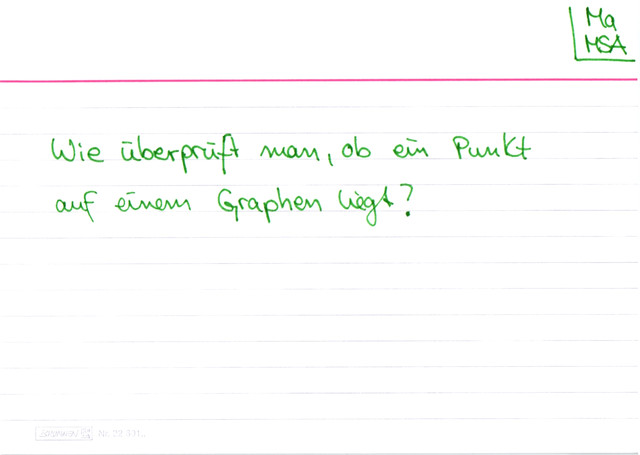 Ma
MSA
Wie überprüft man, ob ein Punkt
auf einem Graphen liegt?